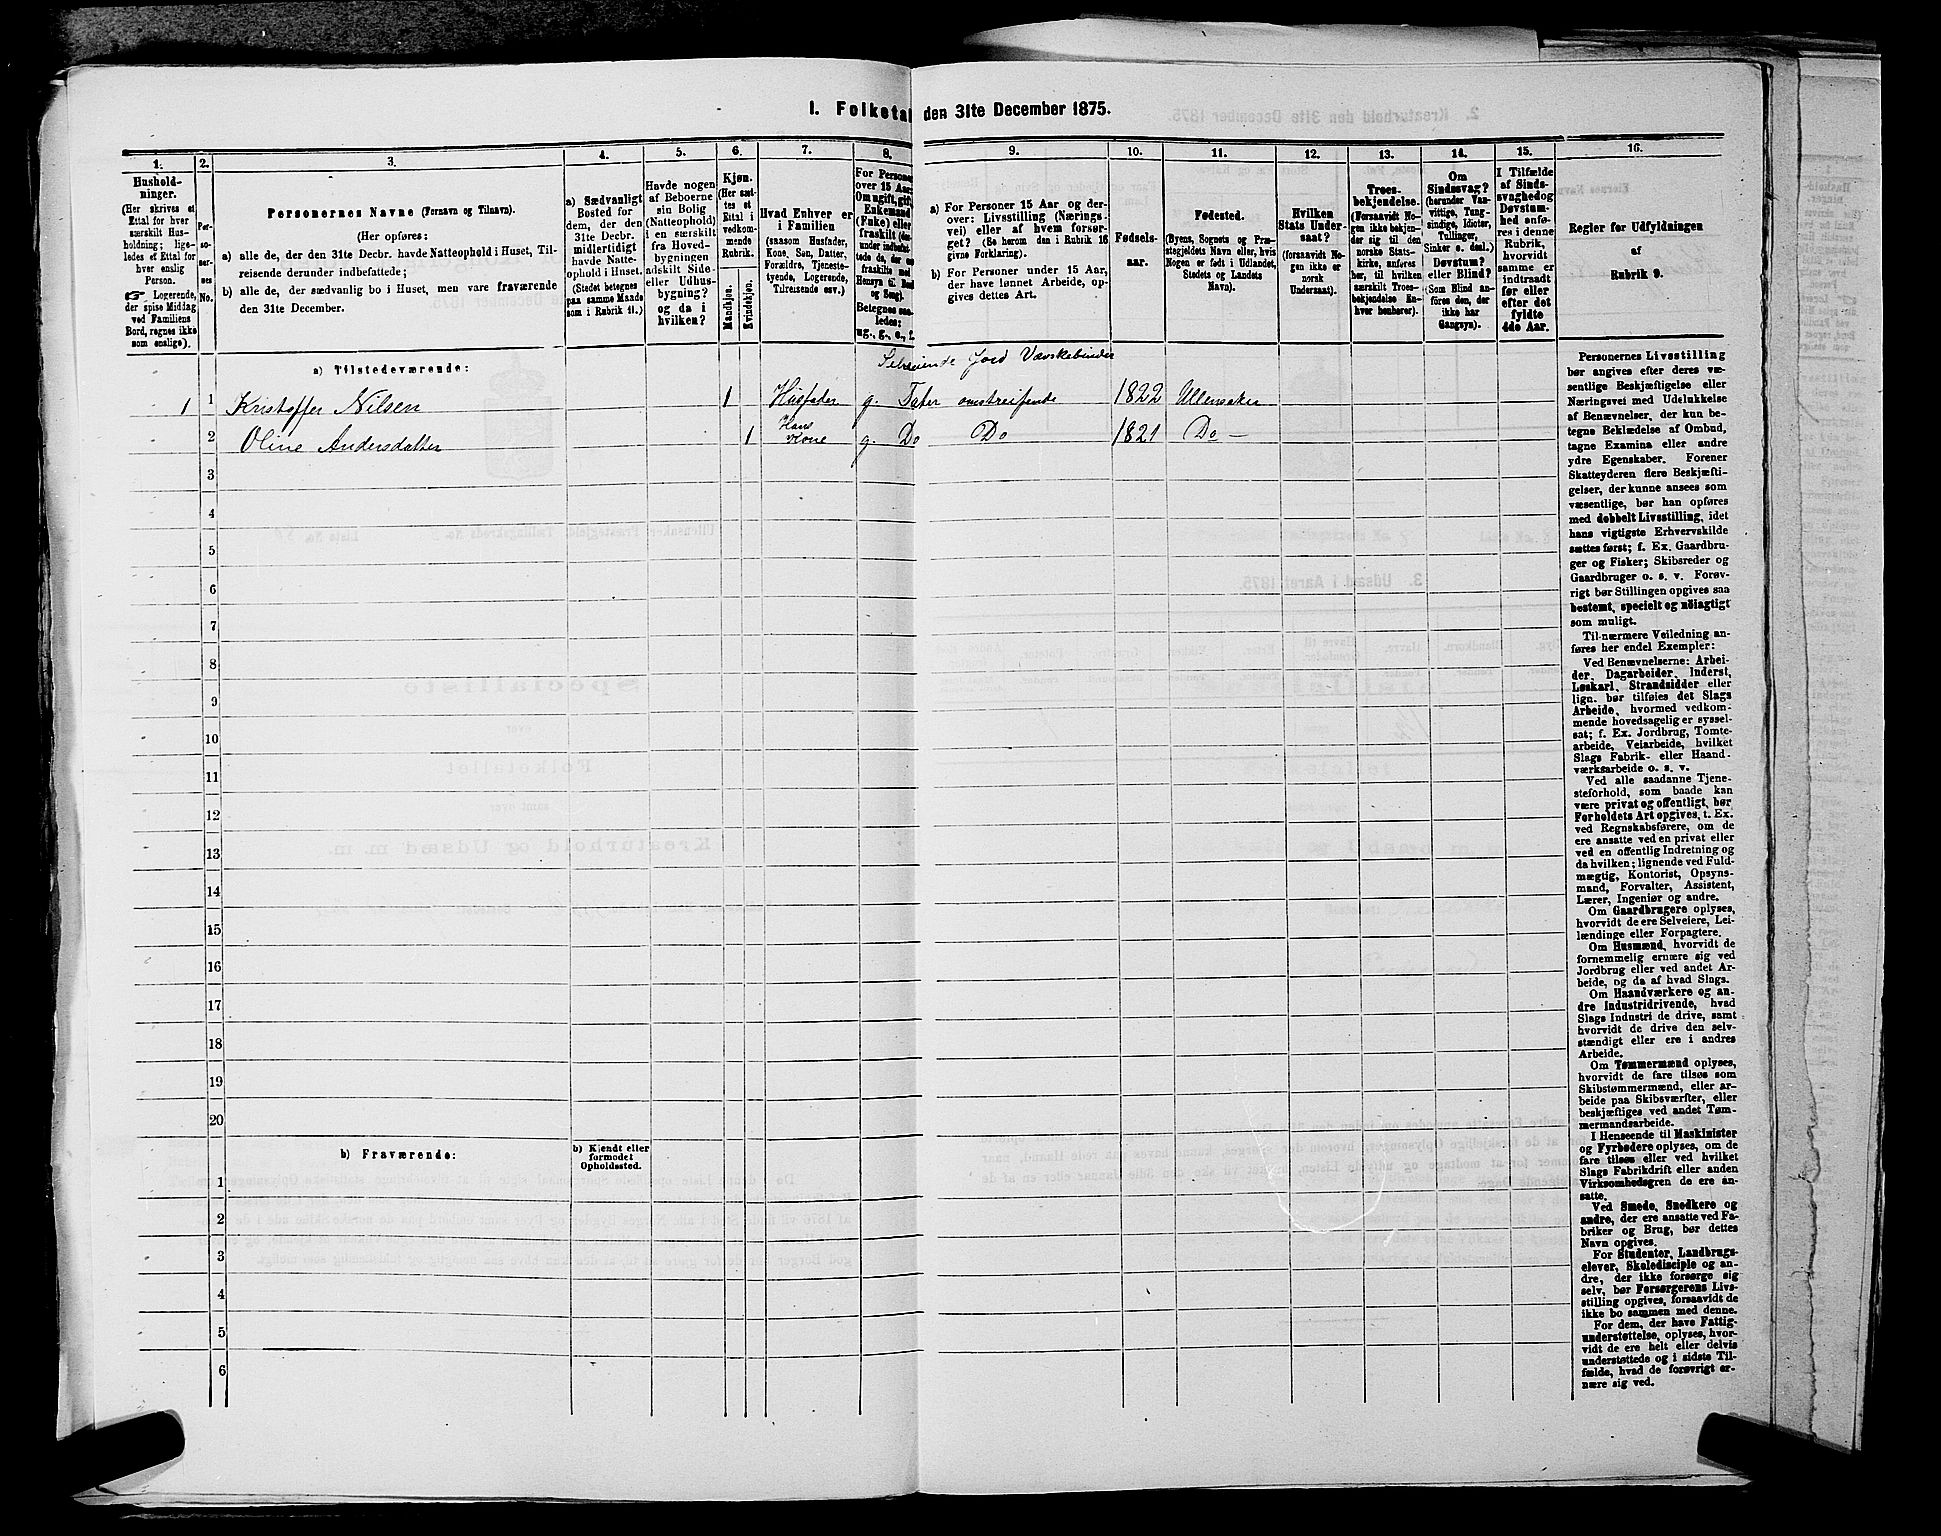 1. Folketal den 31te December 1875.
1.
Hushold-
ninger.
(Her skrives et
Ettal for hver
særskilt Hus-
holdning; lige-
ledes et Ettal for
hver enslig
Person.
☞ Logerende,
der spise Middag
ved Familiens
Bord, regnes ikke
som enslige).
2.
Per-
so-
ner-
nes
No.
3.
Personernes Navne (Fornavn og Tilnavn).
(Her opføres:
a) alle de, der den 31te Decbr. havde Natteophold i Huset, Til-
reisende derunder indbefattede;
b) alle de, der sædvanlig bo i Huset, men vare fraværende
den 31te December.
4.
a) Sædvanligt
Bosted for
dem, der den
31te Decbr.
midlertidigt
havde Natte-
ophold i Huset.
(Stedet betegnes
paa samme Maade
som i Rubrik 11.)
5.
Havde nogen
af Beboerne
sin Bolig
(Natteophold)
i en særskilt
fra Hoved-
bygningen
adskilt Side-
eller Udhus-
bygning?
og da i
hvilken?
6.
Kjøn.
(Her sæt-
tes et
Ettal i
vedkom-
mende
Rubrik.
Mandkjøn.
Kvindekjøn.
7.
Hvad Enhver er
i Familien
(saasom Husfader,
Kone, Søn, Datter,
Forældre, Tjeneste-
tyende, Logerende,
Tilreisende osv.)
8.
For Persone
over 15 Aar:
Om ugift, gift,
Enkemand
(Enke) eller
fraskilt
Betegnes saa-
ledes:
ug., g., e., f.
9.
a) For Personer 15 Aar og der-
over: Livsstilling (Nærings-
vei) eller af hvem forsør-
get? (Se herom den i Rubrik 16
givne Forklaring).
b) For Personer under 15 Aar,
der have lønnet Arbeide, op-
gives dettes Art.
10.
Fødsels-
aar.
11.
Fødested.
(Byens, Sognets og Præ-
stegjeldets Navn eller, hvis
Nogen er født i Udlandet,
Stedets og Landets
Navn).
12.
Hvilken
Stats Under-
saat?
(forsaavidt No-
gen ikke er
norsk
Undersaat).
13.
Troes-
bekjendelse.
(Forsaavidt No-
gen ikke bekjen-
der sig til den
norske Stats-
kirke, anføres
her, til hvilken
særskilt Troes-
bekjendelse En-
hver henhører).
14.
Om
Sindssvag?
(herunder Van-
vittige, Tung-
sindige, Idioter,
Tullinger,
Sinker o. desl.)
Døvstum?
eller Blind?
(Som Blind an-
føres den, der
ikke har
Gangsyn).
15.
I Tilfælde
af Sinds-
svaghed og
Døvstum-
hed anfø-
res i denne
Rubrik,
hvorvidt
samme er
indtraadt
før eller
efter det
fyldte
4de Aar.
16.
Regler for Udfyldningen
af
Rubrik 9.
a) Tilstedeværende:
Selveiende Jord Vævskebinder
1 1 Kristoffer Nilsen 1 Husfader g. Tater omstreifende 1822 Ullensaker
2 Oline Andersdatter 1 Hans Kone g. Do Do 1821 Do —
3
4
5
6
7
8
9
10
11
12
13
14
15
16
17
18
19
20
b) Fraværende:
b) Kjendt eller
formodet
Opholdssted.
1
2
3
4
5
6
Personernes Livsstilling
bør angives efter deres væ-
sentlige Beskjæftigelse eller
Næringsvei med Udelukkelse
af Benævnelser, der kun be-
tegne Beklædelse af Ombud,
tagne Examina eller andre
ydre Egenskaber. Forener
Skatteyderen flere Beskjæfti-
gelser, der kunne ansees som
væsentlige, bør han opføres
med dobbelt Livsstilling, idet
hans vigtigste Erhvervskilde
sættes først; f. Ex. Gaardbru-
ger og Fisker; Skibsreder og
Gaardbruger o. s. v. Forøv-
rigt bør Stillingen opgives saa
bestemt, specielt og nöiagtigt
som muligt.
Til nærmere Veiledning an-
føres her endel Exempler:
Ved Benævnelserne: Arbei-
der, Dagarbeider, Inderst,
Løskarl, Strandsidder eller
lign. bør tilføies det Slags
Arbeide, hvormed vedkom-
mende hovedsagelig er syssel-
sat; f. Ex. Jordbrug, Tomte-
arbeide, Veiarbeide, hvilket
Slags Fabrik- eller Haand-
værksarbeide o. s. v.
Ved alle saadanne Tjene-
steforhold, som baade kan
være privat og offentligt, bør
Forholdets Art opgives, t. Ex.
ved Regnskabsførere, om de
ere ansatte ved en privat eller
ved en offentlig Indretning og
da hvilken; lignende ved Fuld-
mægtig, Kontorist, Opsyns-
mand, Forvalter, Assistent,
Lærer, Ingeniør og andre.
Om Gaardbrugere oplyses,
hvorvidt de ere Selveiere, Lei-
lændinge eller Forpagtere.
Om Husmænd, hvorvidt de
fornemmelig ernære sig ved
Jordbrug eller ved andet Ar-
beide, og da af hvad Slags.
Om Haandværkere og an-
dre Industridrivende, hvad
Slags Industri de drive, samt
hvorvidt de drive den selv-
stændigt eller ere i andres
Arbeide.
Om Tømmermænd oplyses,
hvorvidt de fare tilsøs som
Skibstømmermænd, eller ar-
beide paa Skibsværfter, eller
beskjæftiges ved andet Tøm-
mermandsarbeide.
I Henseende til Maskinister
og Fyrbødere oplyses, om de
fare tilsøs eller ved hvilket
Slags Fabrikdrift eller anden
Virksomhedsgren de ere an-
satte.
Ved Smede, Snedkere og
andre, der ere ansatte ved Fa-
briker og Brug, bør dettes
Navn opgives.
For Studenter, Landbrugs-
elever, Skoledisciple og an-
dre, der ikke forsørge sig
selv, bør Forsørgerens Livs-
stilling opgives, forsaavidt de
ikke bo sammen med denne.
For dem, der have Fattig-
understøttelse, oplyses, hvor-
vidt de ere helt eller delvis
understøttede og i sidste Til-
fælde, hvad de forøvrigt er-
nære sig ved.